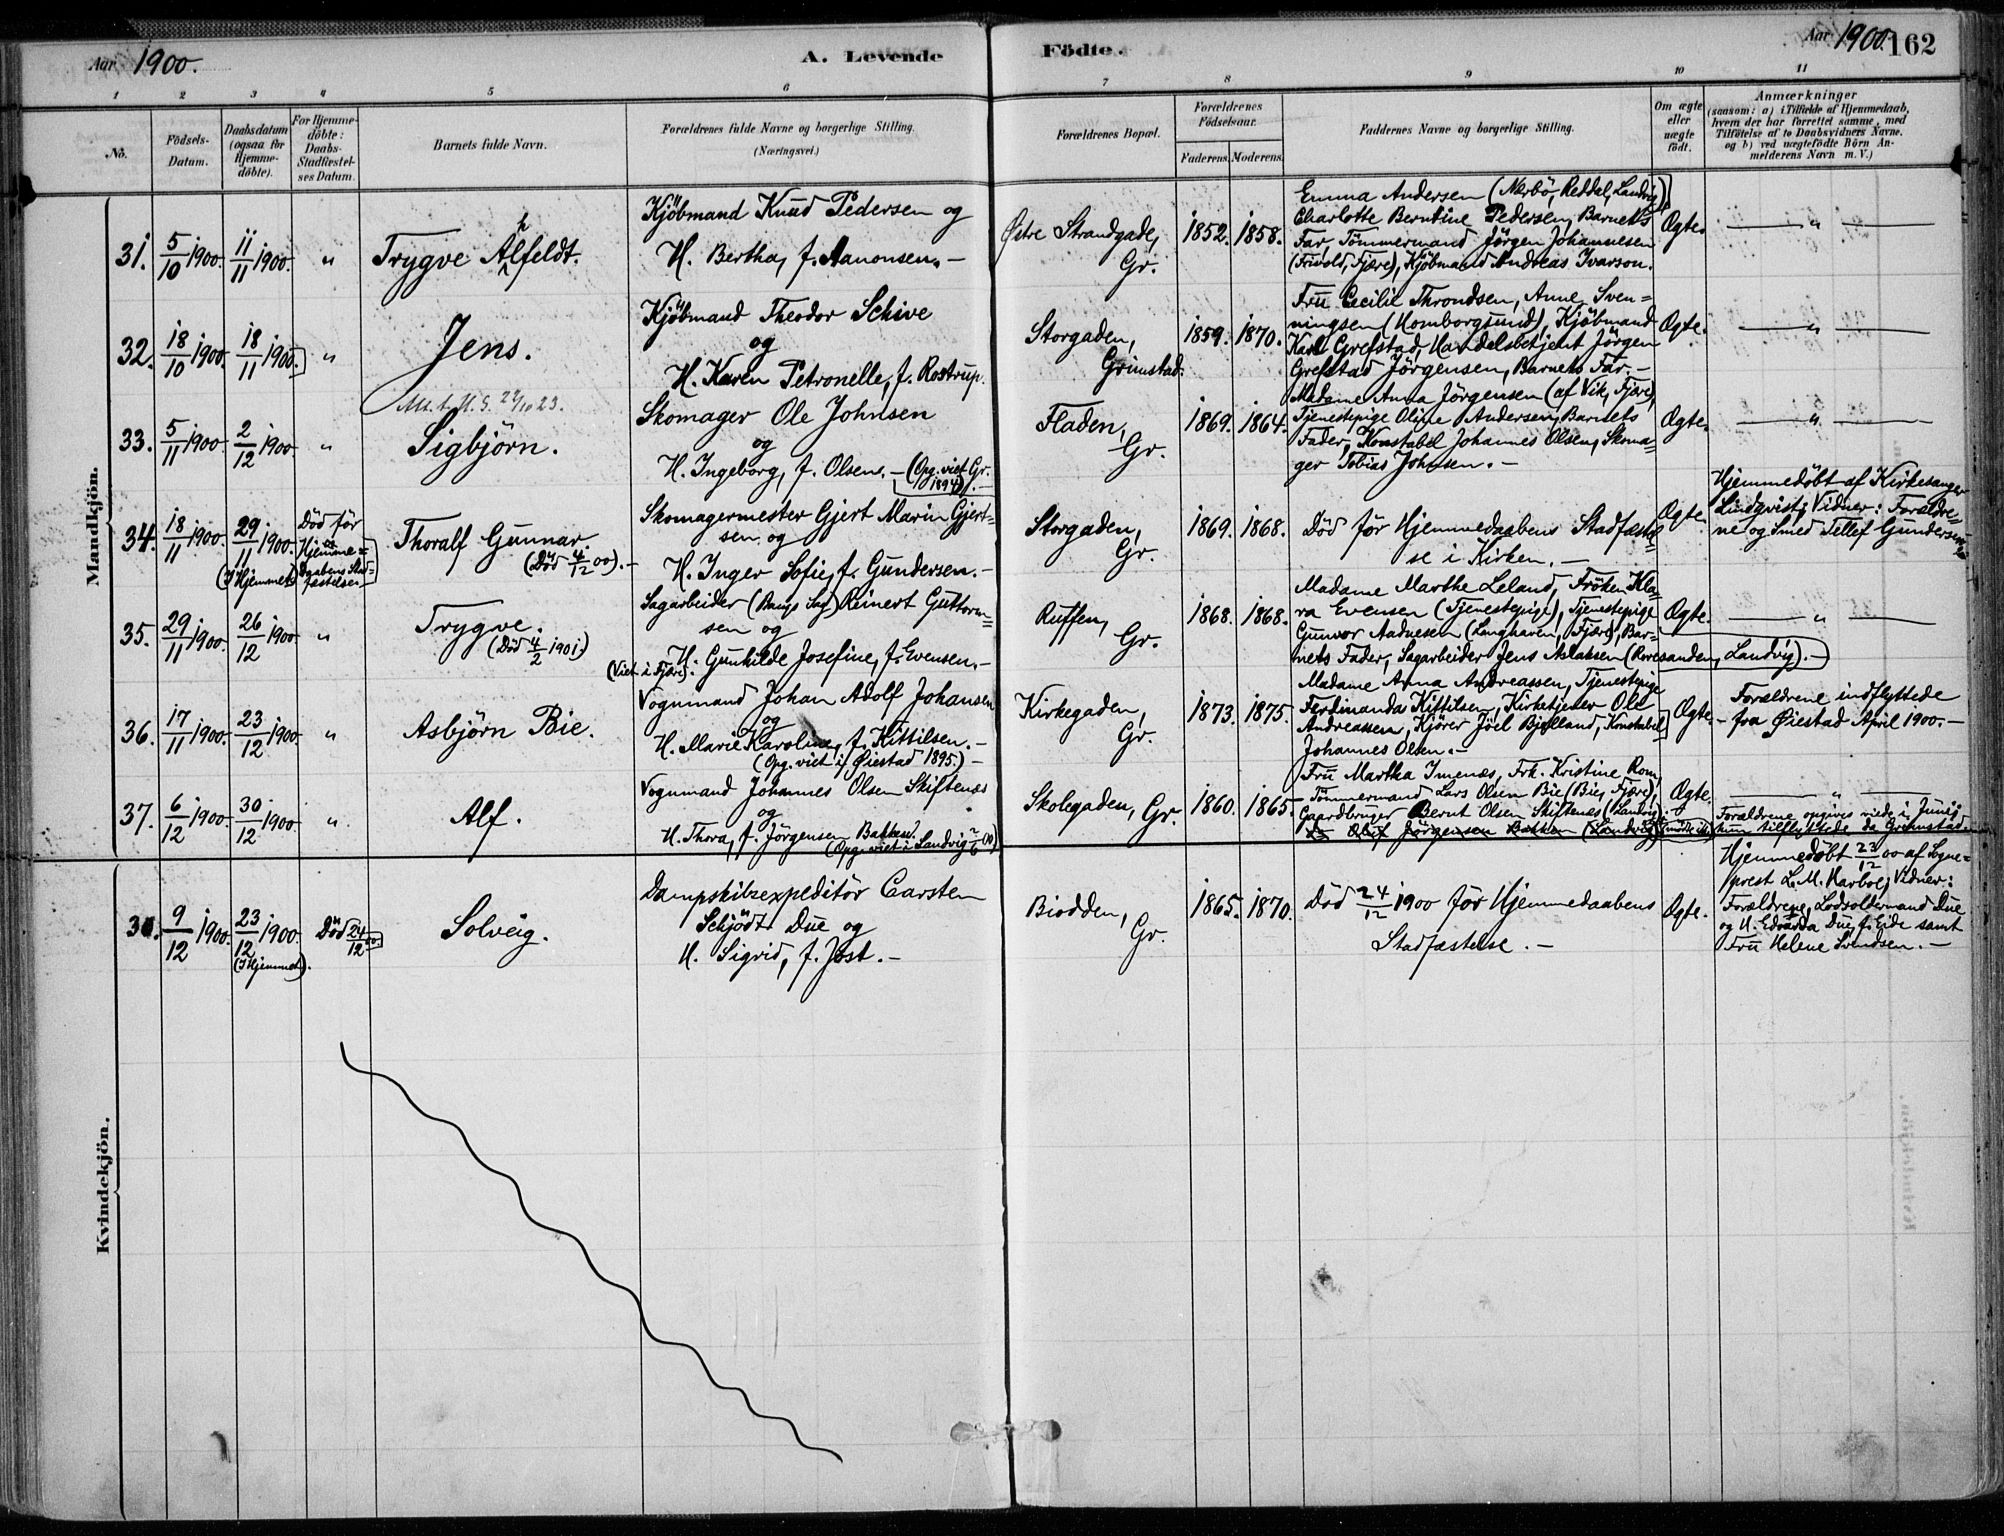 Aar 1900.
A. Levende
Födte.
Aar 1900.
162
1 2 3 4 5 6 7 8 9 10 11
No.
Födsels-
Datum.
Daabsdatum
(ogsaa for
Hjemme-
döbte).
For Hjemme-
döbte:
Daabs-
Stadfæstel-
ses Datum.
Barnets fulde Navn.
Forældrenes fulde Navne og borgerlige Stilling.
(Næringsvei.)
Forældrenes Bopæl.
Forældrenes
Födselsaar.
Faderens. Moderens.
Faddernes Navne og borgerlige Stilling.
Om ægte
eller
uægte
födt.
Anmærkninger
(saasom: a) i Tilfælde af Hjemmedaab,
hvem der har forrettet samme, med
Tilföielse af to Daabsvidners Navne.
og b) ved uægtefödte Börn An-
melderens Navn m. V.)
Mandkjön.
31. 5/10 1900. 11/11 1900. " Trygve Alfeldt.
h
Kjöbmand Knud Pedersen og
H. Bertha, f. Aanonsen. —
Østre Strandgade,
Gr.
1852. 1858.
Emma Andersen (Nærbö, Reddal, Landvig),
Charlotte Berntine Pedersen, Barnets
Far, Tömmermand Jörgen Johannesen
(Frivold, Fjære), Kjöbmand Andreas Ivarson.
Ægte. — " —
32. 18/10 1900. 18/11 1900. " Jens.
Kjöbmand Theodor Schive
og
H. Karen Petronelle, f. Rostrup.
Storgaden,
Grimstad.
1859. 1870.
Fru Cecilie Throndsen, Anne Sven=
ningsen (Homborgsund), Kjöbmand
Karl Grefstad, Handelsbetjent Jörgen
Grefstad Jörgensen, Barnets Far. —
Ægte. — " —
33. 5/11 1900. 2/12 1900. " Sigbjörn.
Skomager Ole Johnsen
og
H. Ingeborg, f. Olsen. — (Opg. viet Gr.
1894). —
Fladen,
Gr.
1869. 1864.
Madame Anna Jörgensen (af Vik, Fjære),
Tjenestepige Oline Andersen, Barnets
Fader, Konstabel Johannes Olsen, Skoma=
ger Tobias Johnsen. —
Ægte. — " —
34. 18/11 1900. 29/11 1900. (I Hjemmet)
Död för
Hjemme=
daabens Stad=
fæstelse.
Thoralf Gunnar
(Död 4/12 00). —
Skomagermester Gjert Marin Gjert=
sen og
H. Inger Sofie, f. Gundersen. —
Storgaden,
Gr.
1869. 1868.
Död för Hjemmedaabens Stadfæstel=
se i Kirken. —
Ægte.
Hjemmedöbt af Kirkesanger
Lindqvist; Vidner: Forældre=
ne og Smed Tellef Gundersen.
35. 29/11 1900. 26/12 1900. " Trygve.
(Död 4/2 1901.)
Sagarbeider (Bangs Sag) Reinert Guttorm=
sen og
(Viet i Fjære): H. Gunhilde Josefine, f. Evensen. —
Ruffen,
Gr.
1868. 1868.
Madame Marthe Leland, Fröken Kla=
ra Evensen (Tjenestepige), Tjenestepige
Gunvor Aadnesen (Langhaven, Fjære), Bar=
nets Fader, Sagarbeider Jens Aslaksen (Roresanden, Landvig). —
Ægte. — " —
36. 17/11 1900. 23/12 1900. " Asbjörn Bie.
Vognmand Johan Adolf Johansen
og
H. Marie Karoline, f. Kittilsen. —
(Opg. viet i Øiestad 1895.) —
Kirkegaden,
Gr.
1873. 1875.
Madame Anna Andreassen, Tjenestepige
Ferdinanda Kittilsen, Kirketjener Ole
Andreassen, Kjörer Joel Bjelland, Konstabel
Johannes Olsen. —
Ægte.
Forældrene indflyttede
fra Øiestad April 1900. —
37. 6/12 1900. 30/12 1900. " Alf.
Vognmand Johannes Olsen Skiftenes
og
H. Thora, f. Jörgensen Bakken.
(Opg. viet i Landvig 2/6 00)
Skolegaden, Gr.
1860. 1865.
Fru Martha Imenæs, Frk. Kristine Rom,
Tömmermand Lars Olsen Bie (Bie, Fjære),
Gaardbruger Bernt Olsen Skiftenes (Landvig),
Olaf Jörgensen Bakken (Landvig)
Ægte. — " —
Forældrene opgives viede i Juni;
tilflyttede da Grimstad.
Kvindekjön.
9/12 1900. 23/12 1900. (I Hjemmet).
Död 24/12 00.
Solveig.
Dampskibsexpeditör Carsten
Schjödt Due og
H. Sigrid, f. Jost. —
Biodden,
Gr.
1865. 1870.
Död 24/12 1900 för Hjemmedaabens
Stadfæstelse. —
Ægte.
Hjemmedöbt 23/12 00 af Sogne=
prest L. M. Harboe; Vidner:
Forældrene, Lodsoldermand Due
og H. Edvarda Due, f. Eide samt
Fru Helene Svendsen. —